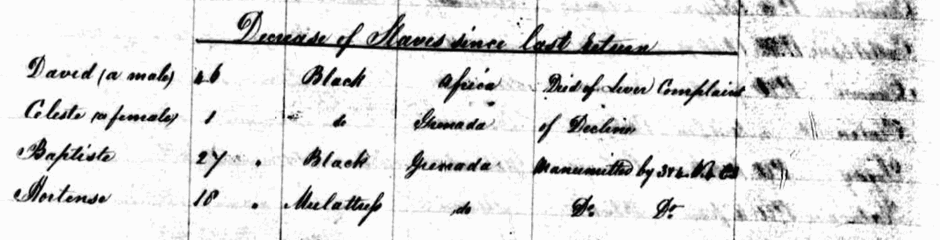 Decrease of Slaves since last return
David (a male) 46 Black Africa Died of Liver Complaint
Celeste (a female) 1 " do Grenada of Decline
Baptiste 27 " Black Grenada Manumitted by
Hortense 18 " Mulattress do Do Do